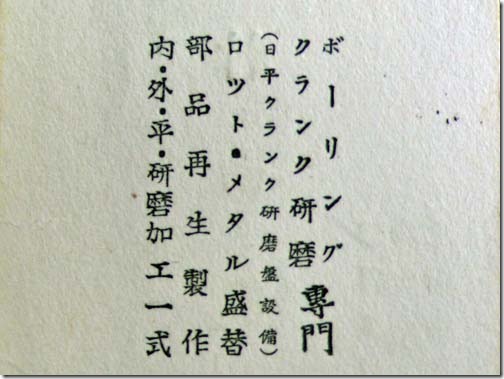 ボーリング
クランク研磨専門
(日平クランク研磨盤設備)
ロツト・メタル盛替
部品再生製作
内・外・平・研磨加工一式